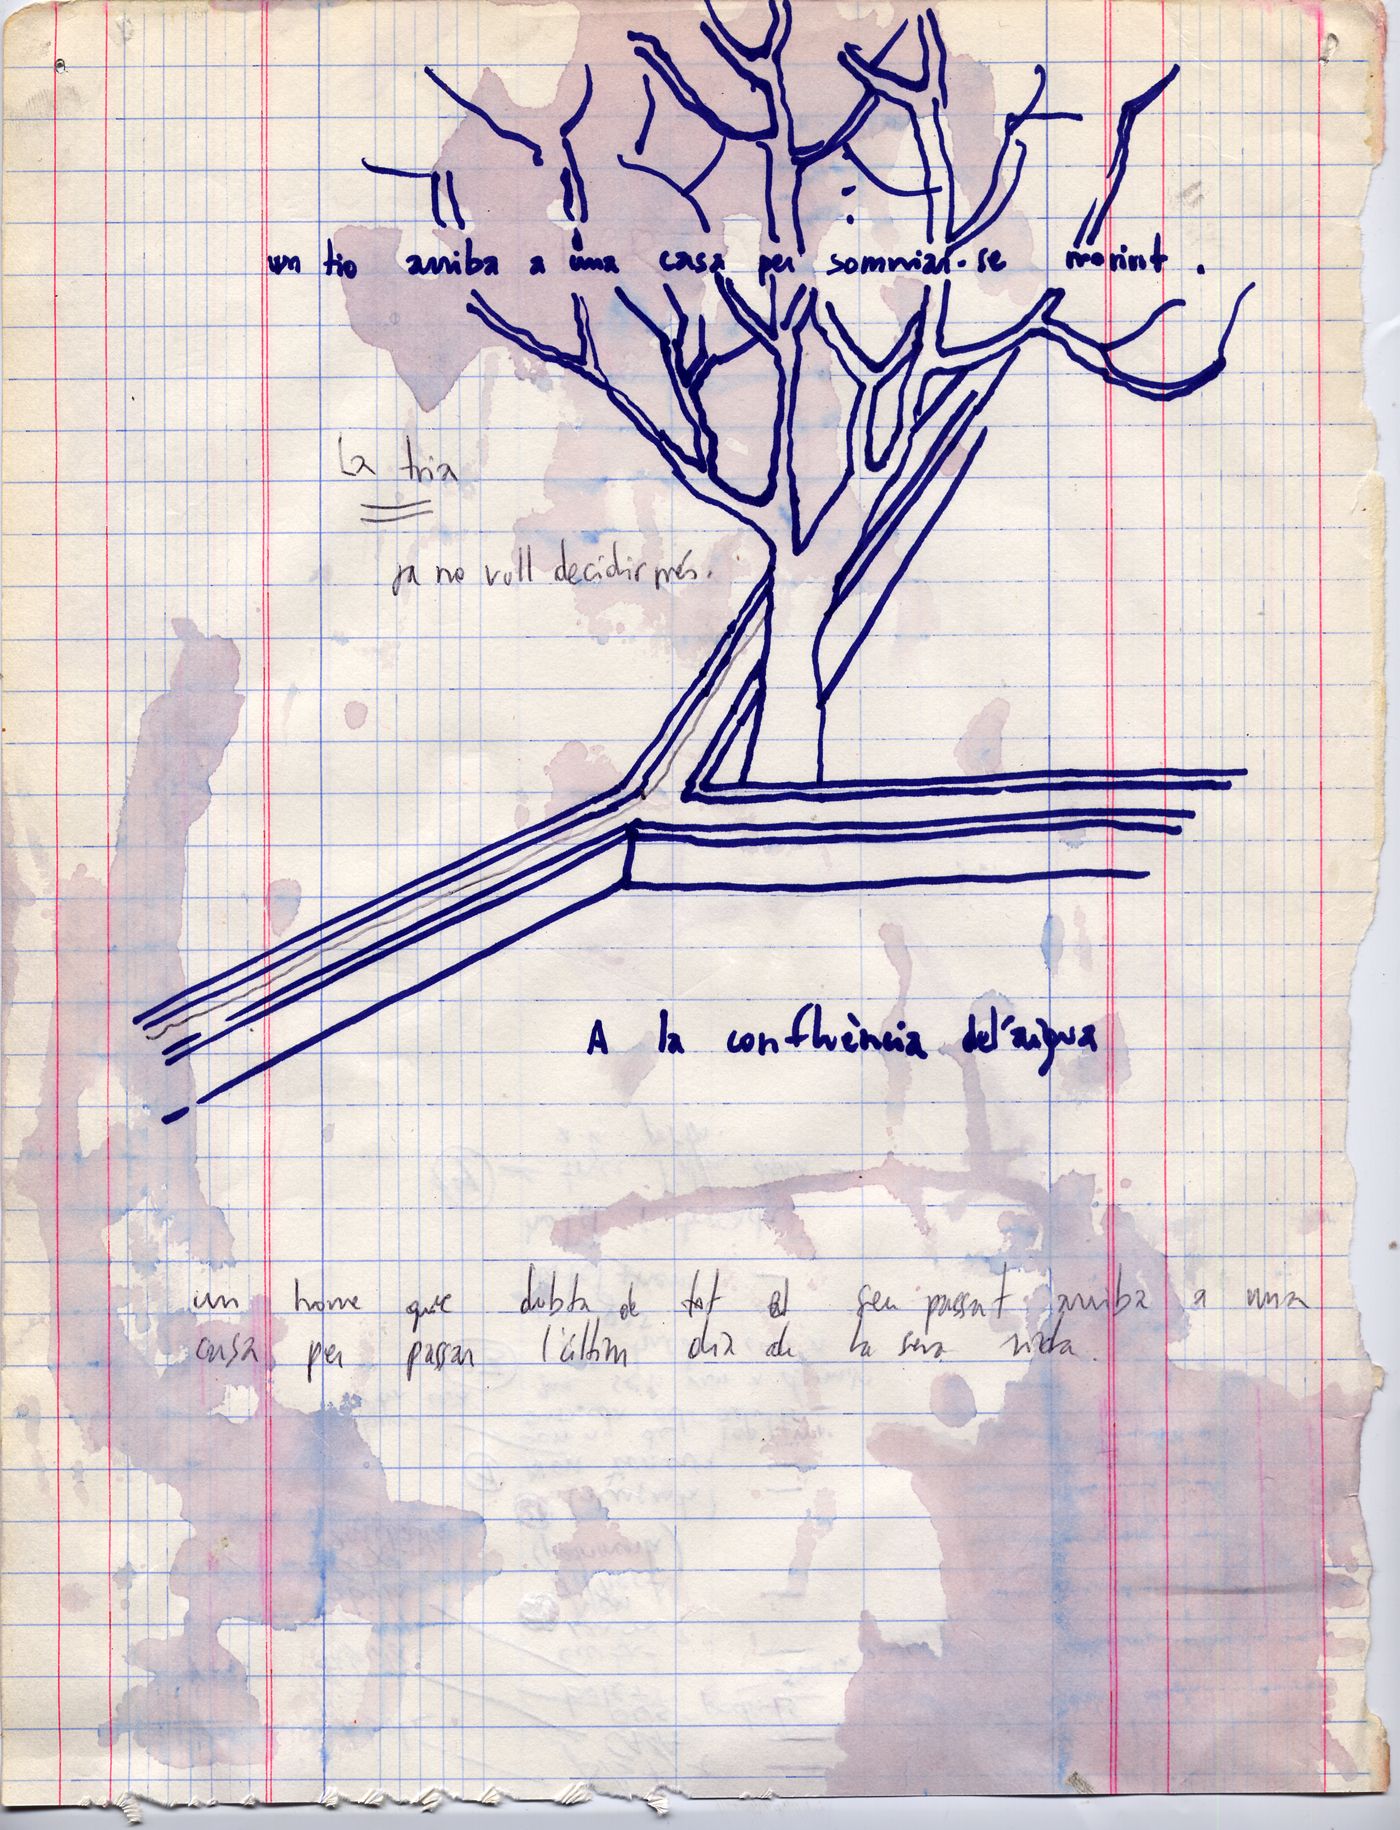 un tio arriba a una casa per somniar-se morint.
La tria
ja no vull decidir més.
A la confluència del'aigua
un home que dubta de tot el seu passat arriba a una
casa per passar l'últim dia de la seva vida.